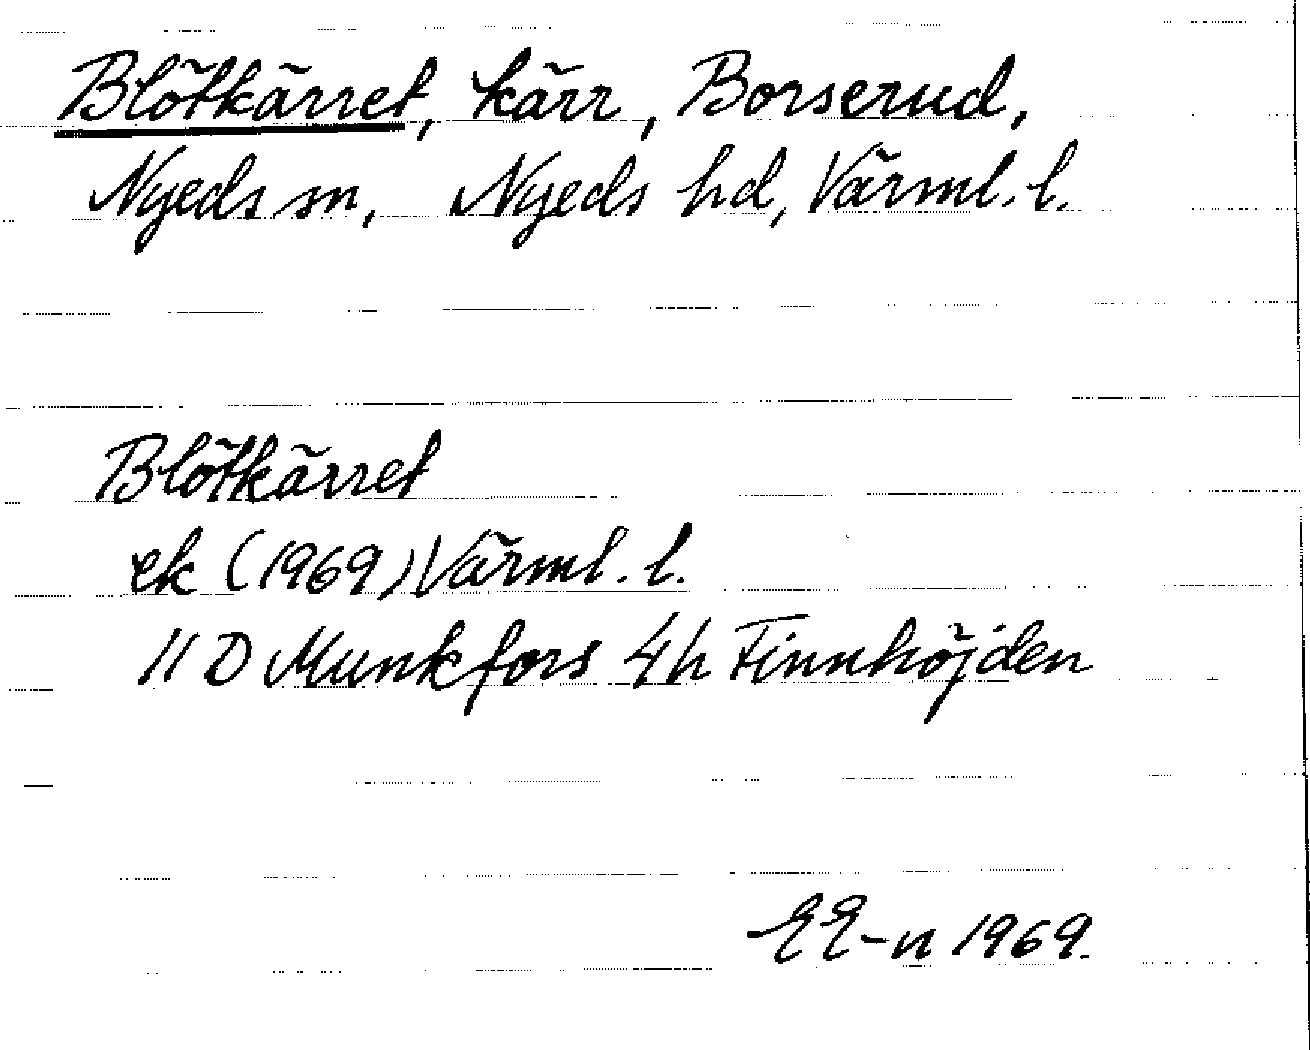 Blötkärret, kärr, Borserud,
Nyeds sn, Nyeds hd, Värml. l.
Blötkärret
ek (1969) Värml. l.
11 D Munkfors 4h Finnhöjden
EE-n 1969.